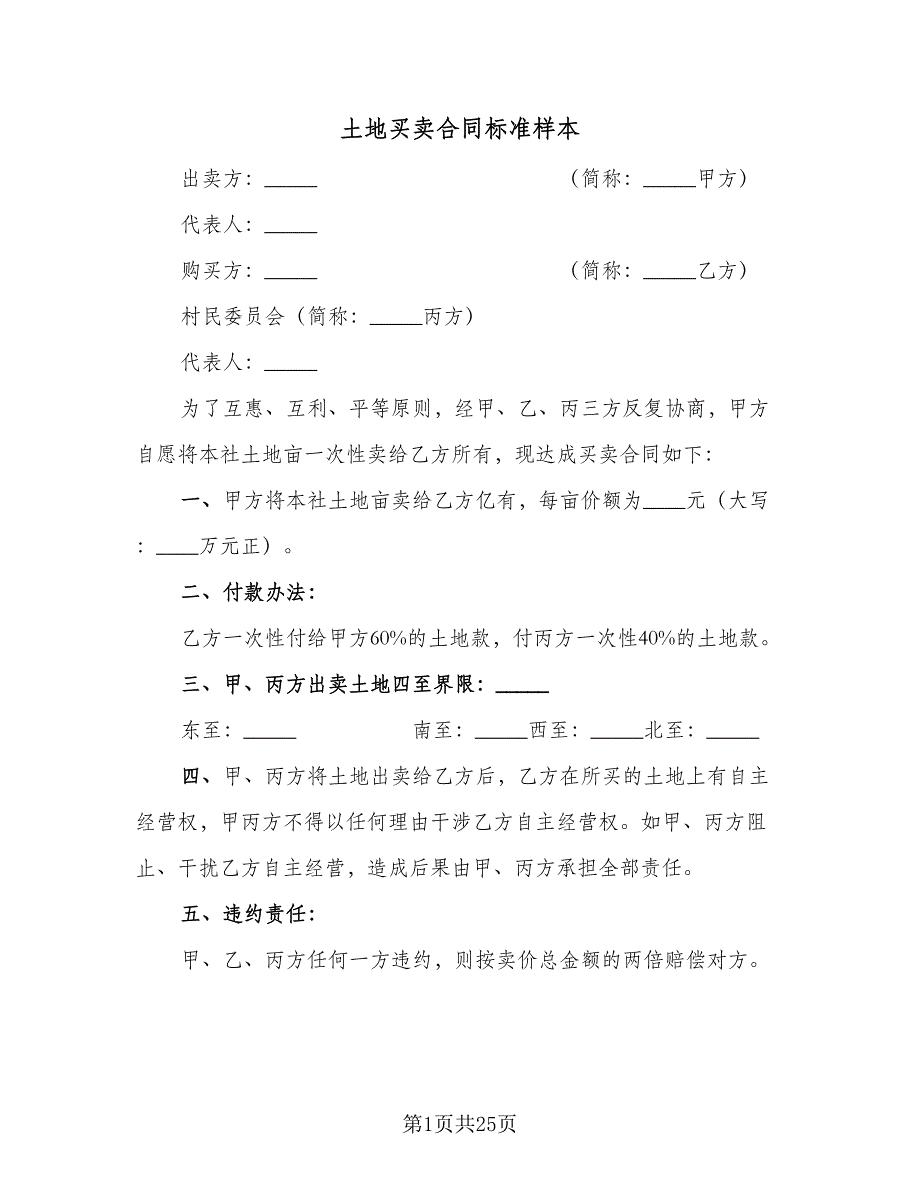 土地买卖合同标准样本
出卖方：_____ （简称：_____甲方）
代表人：_____
购买方：_____ （简称：_____乙方）
村民委员会（简称：_____丙方）
代表人：_____
为了互惠、互利、平等原则，经甲、乙、丙三方反复协商，甲方
自愿将本社土地亩一次性卖给乙方所有，现达成买卖合同如下：
一、甲方将本社土地亩卖给乙方亿有，每亩价额为____元（大写
：____万元正）。
二、付款办法：
乙方一次性付给甲方60%的土地款，付丙方一次性40%的土地款。
三、甲、丙方出卖土地四至界限：_____
东至：_____ 南至：_____西至：_____北至：_____
四、甲、丙方将土地出卖给乙方后，乙方在所买的土地上有自主
经营权，甲丙方不得以任何理由干涉乙方自主经营权。如甲、丙方阻
止、干扰乙方自主经营，造成后果由甲、丙方承担全部责任。
五、违约责任：
甲、乙、丙方任何一方违约，则按卖价总金额的两倍赔偿对方。
第1页共25页